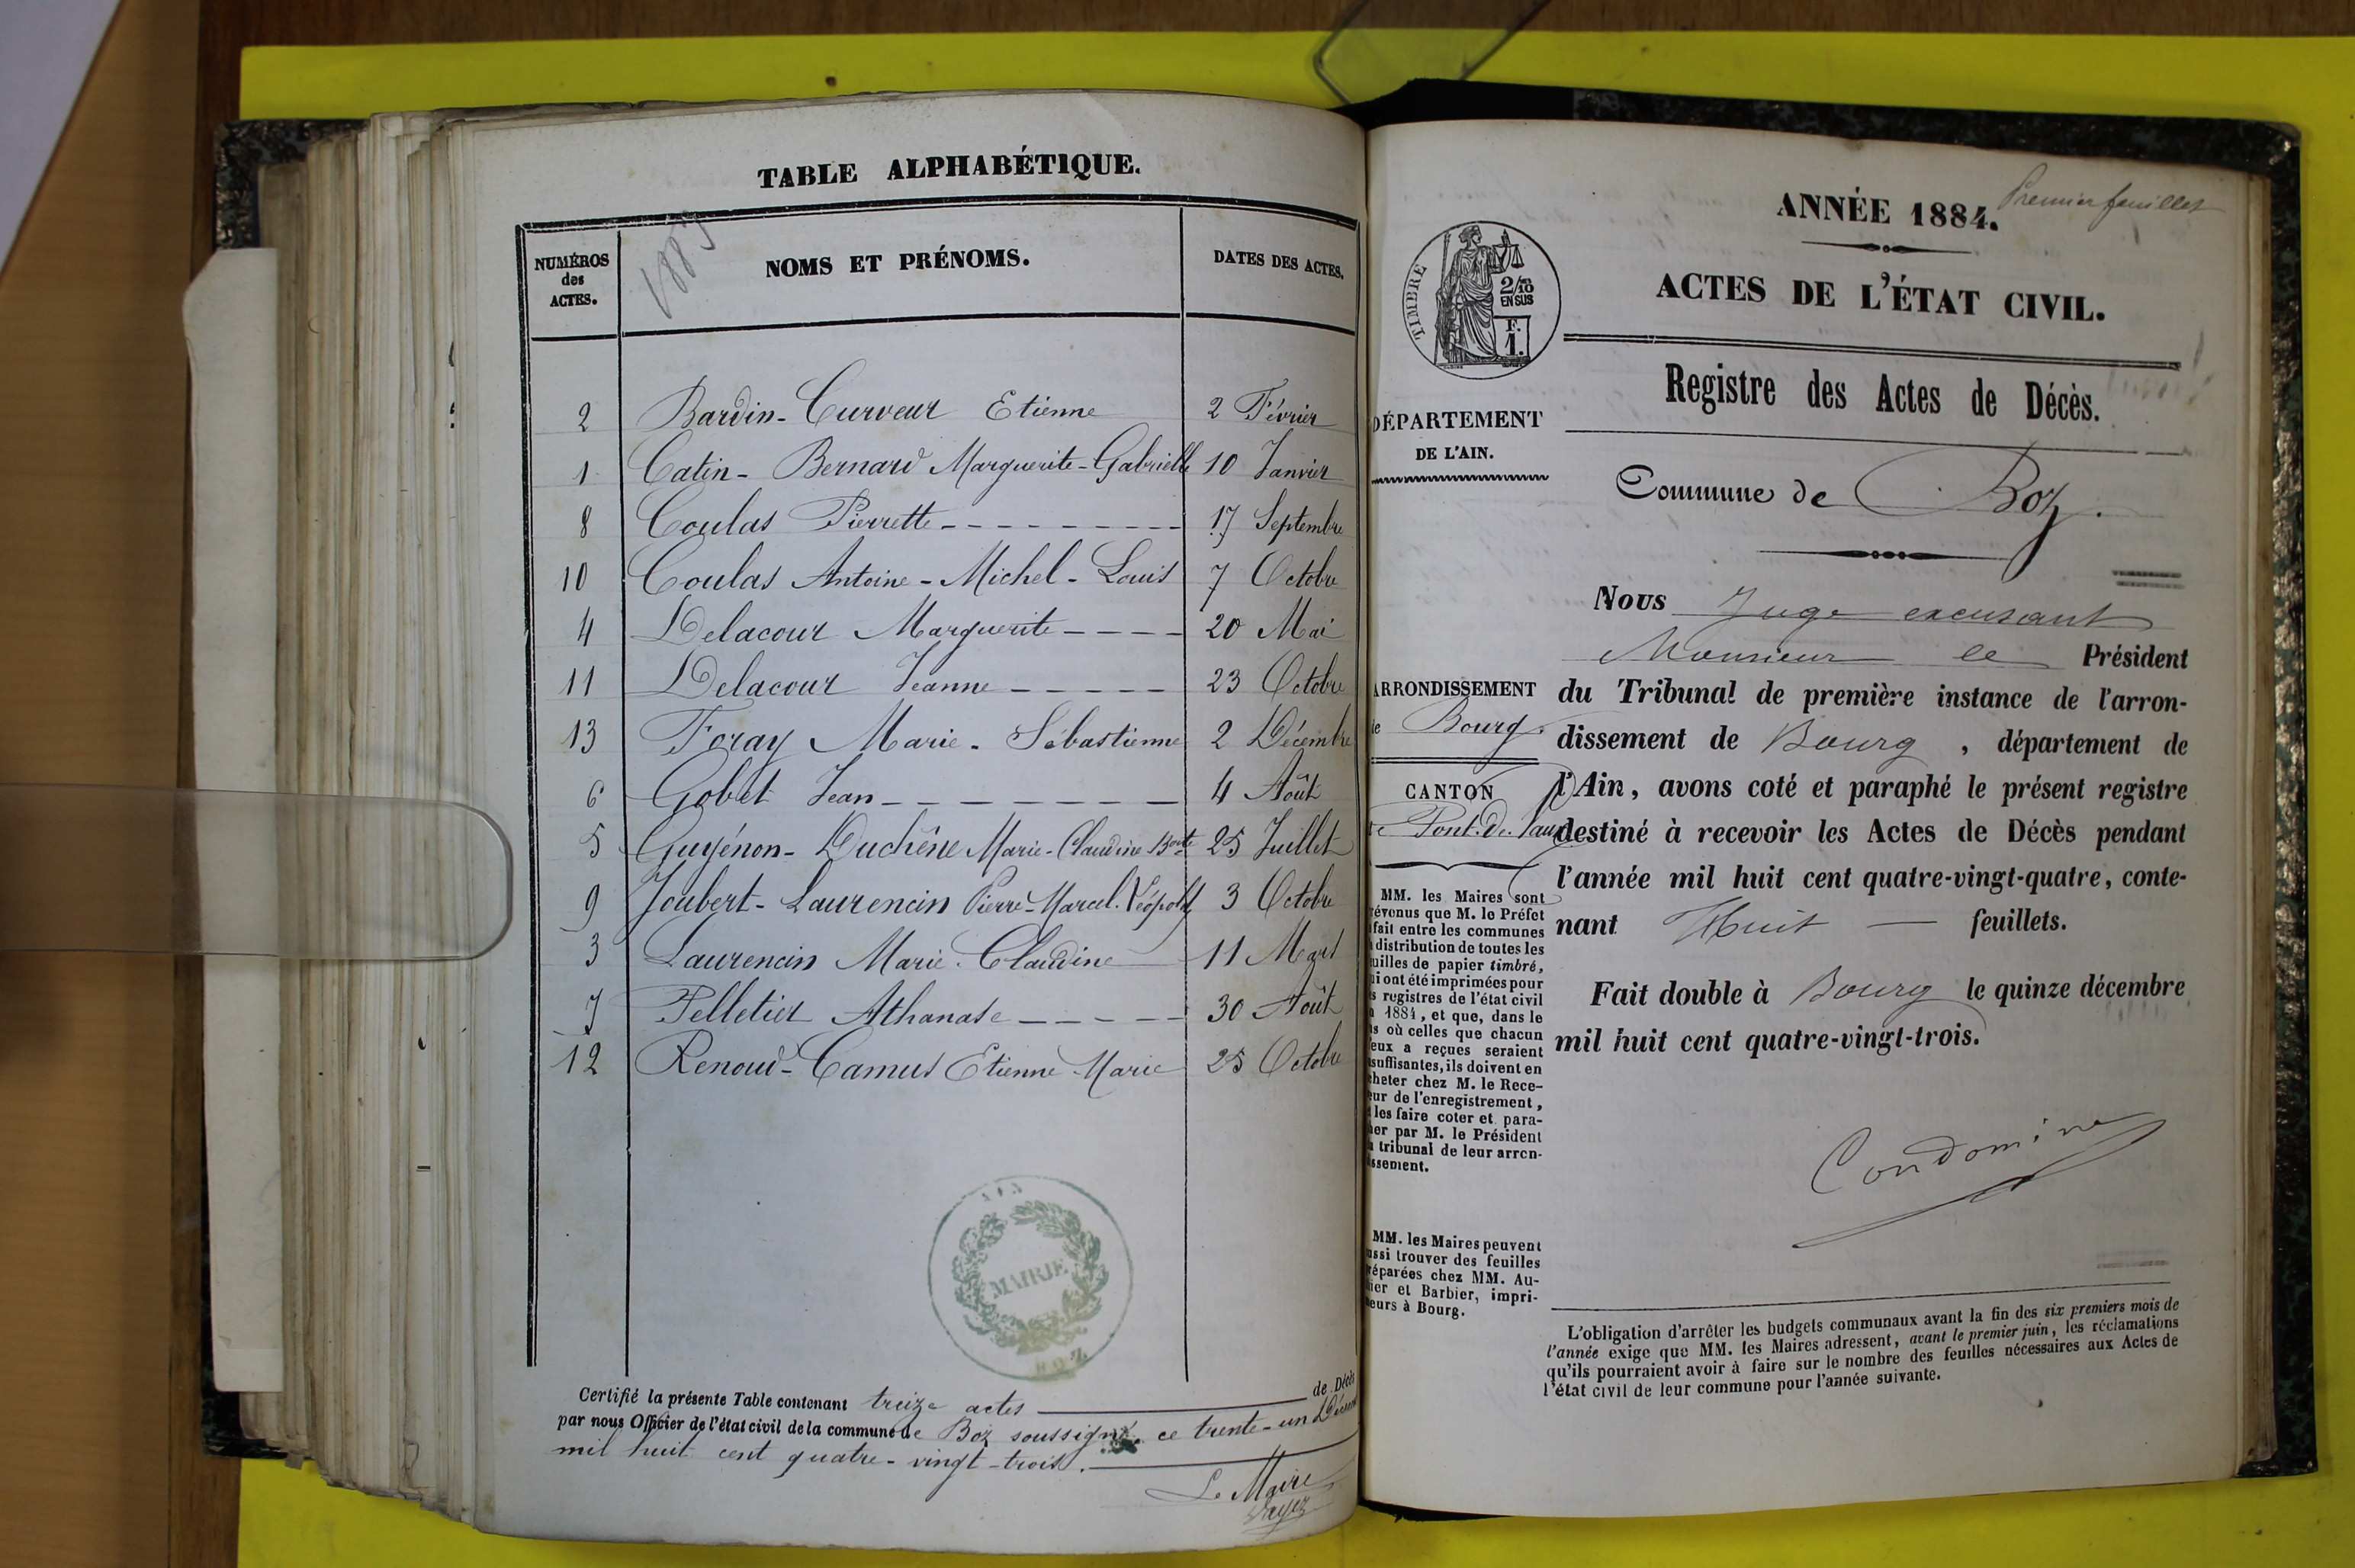 TABLE ALPHABÉTIQUE.
NUMÉROS
des
ACTES.
1883
NOMS ET PRÉNOMS.
DATES DES ACTES.
2 Bardin-Curveur Etienne 2 Février
1 Catin-Bernard Marguerite-Gabrielle 10 Janvier
8 Coulas Pierrette 17 Septembre
10 Coulas Antoine-Michel-Louis 7 Octobre
4 Delacour Marguerite 20 Mai
11 Delacour Jeanne 23 Octobre
13 Foray Marie-Sébastienne 2 Décembre
6 Gobet Jean 4 Août
5 Guyénon-Duchêne Marie-Claudine 25 Juillet
9 Joubert-Laurencin Pierre-Marcel-Léopold 3 Octobre
3 Laurencin Marie-Claudine 11 Mars
7 Pelletier Athanase 30 Août
12 Renoud-Camus Etienne-Marie 25 Octobre
AIN
MAIRIE
BOZ
Certifié la présente Table contenant treize actes de Décès
par nous Officier de l'état civil de la commune de Boz soussigné, ce trente-un Décembre
mil huit cent quatre-vingt-trois.
Le Maire
Premier feuillet
ANNÉE 1884.
ACTES DE L'ÉTAT CIVIL.
TIMBRE
2/10
EN SUS
F.
1.
Registre des Actes de Décès.
DÉPARTEMENT
DE L'AIN.
Commune de Boz.
ARRONDISSEMENT
de Bourg.
CANTON
de Pont-de-Vaux
MM. les Maires sont
révenus que M. le Préfet
fait entre les communes
distribution de toutes les
uilles de papier timbré,
ui ont été imprimées pour
s registres de l'état civil
n 1884, et que, dans le
s où celles que chacun
'eux a reçues seraient
suffisantes, ils doivent en
cheter chez M. le Rece-
eur de l'enregistrement,
les faire coter et para-
her par M. le Président
u tribunal de leur arron-
issement.
MM. les Maires peuvent
ussi trouver des feuilles
réparées chez MM. Au-
ier et Barbier, impri-
eurs à Bourg.
Nous Juge excusant
Monsieur le Président
du Tribunal de première instance de l'arron-
dissement de Bourg, département de
l'Ain, avons coté et paraphé le présent registre
destiné à recevoir les Actes de Décès pendant
l'année mil huit cent quatre-vingt-quatre, conte-
nant Huit feuillets.
Fait double à Bourg le quinze décembre
mil huit cent quatre-vingt-trois.
Condomine
L'obligation d'arrêter les budgets communaux avant la fin des six premiers mois de
l'année exige que MM. les Maires adressent, avant le premier juin, les réclamations
qu'ils pourraient avoir à faire sur le nombre des feuilles nécessaires aux Actes de
l'état civil de leur commune pour l'année suivante.